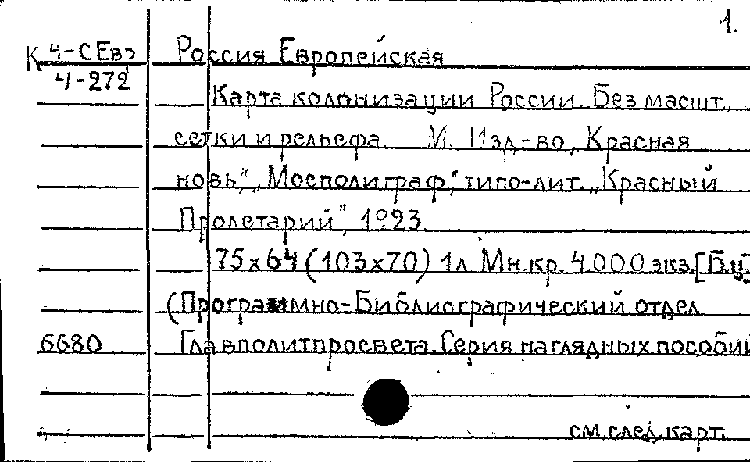 1.
К 4-С Евз
4-272
Россия Европейская
Карта колонизации России. Без масшт.,
сетки и рельефа. М. Изд-во „Красная
новь", „Мосполиграф", типо-лит. „Красный
Пролетарий", 1923.
75х64 (103х70) 1л. Мн.кр. 4.000 экз. [Б.ц.]
(Программно-Библиографический отдел
6680 Главполитпросвета. Серия наглядных пособий
см. след. карт.